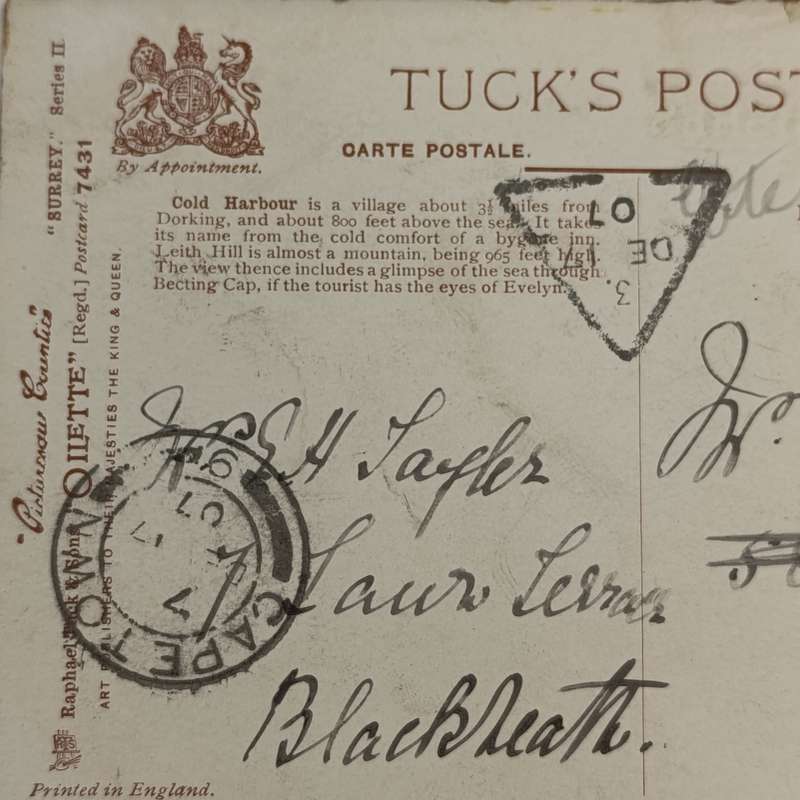 TUCK'S POST
CARTE POSTALE.
By Appointment.
Cold Harbour is a village about 3½ miles from
Dorking, and about 800 feet above the sea. It takes
its name from the cold comfort of a bygone inn.
Leith Hill is almost a mountain, being 965 feet high.
The view thence includes a glimpse of the sea through
Becting Cap, if the tourist has the eyes of Evelyn.
"Picturesque Counties" "SURREY." Series II
Raphael Tuck & Sons' "OILETTE" [Regd.] Postcard 7431
ART PUBLISHERS TO THEIR MAJESTIES THE KING & QUEEN.
DE
07
3.
CAPE TOWN
07
17
E H Tayler
Blackheath.
Printed in England.